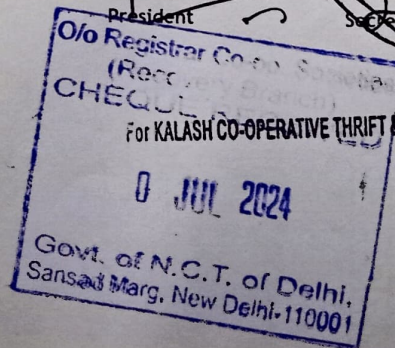 President
O/o Registrar Co-op. Societies
(Recovery Branch)
CHEQUE
For KALASH CO-OPERATIVE THRIFT &
0 JUL 2024
Govt. of N.C.T. of Delhi,
Sansad Marg, New Delhi-110001